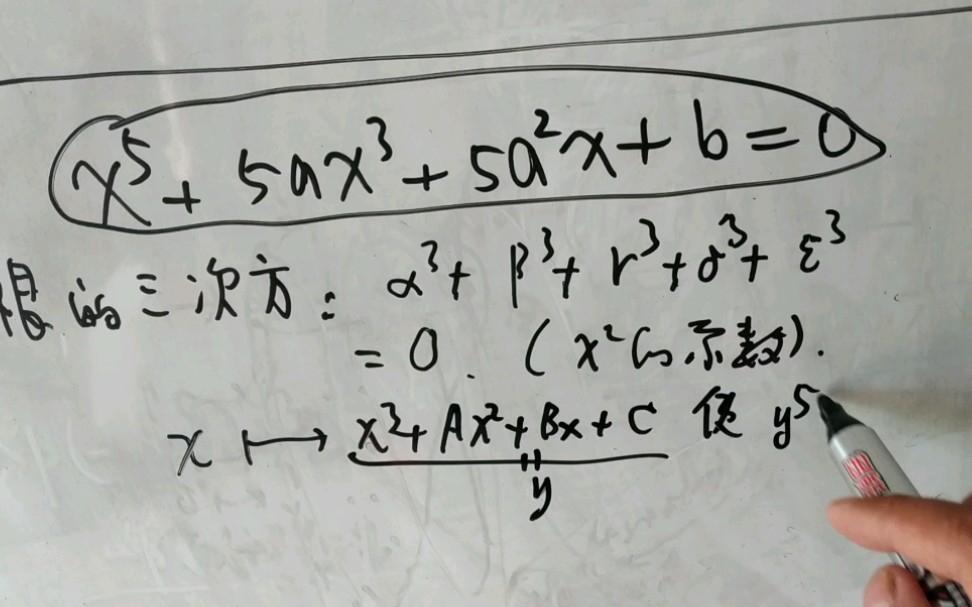 x⁵ + 5ax³ + 5a²x + b = 0
根的三次方: α³ + β³ + r³ + δ³ + ε³
= 0. (x²的系数).
x ↦ x³ + Ax² + Bx + C 使 y⁵
=
y